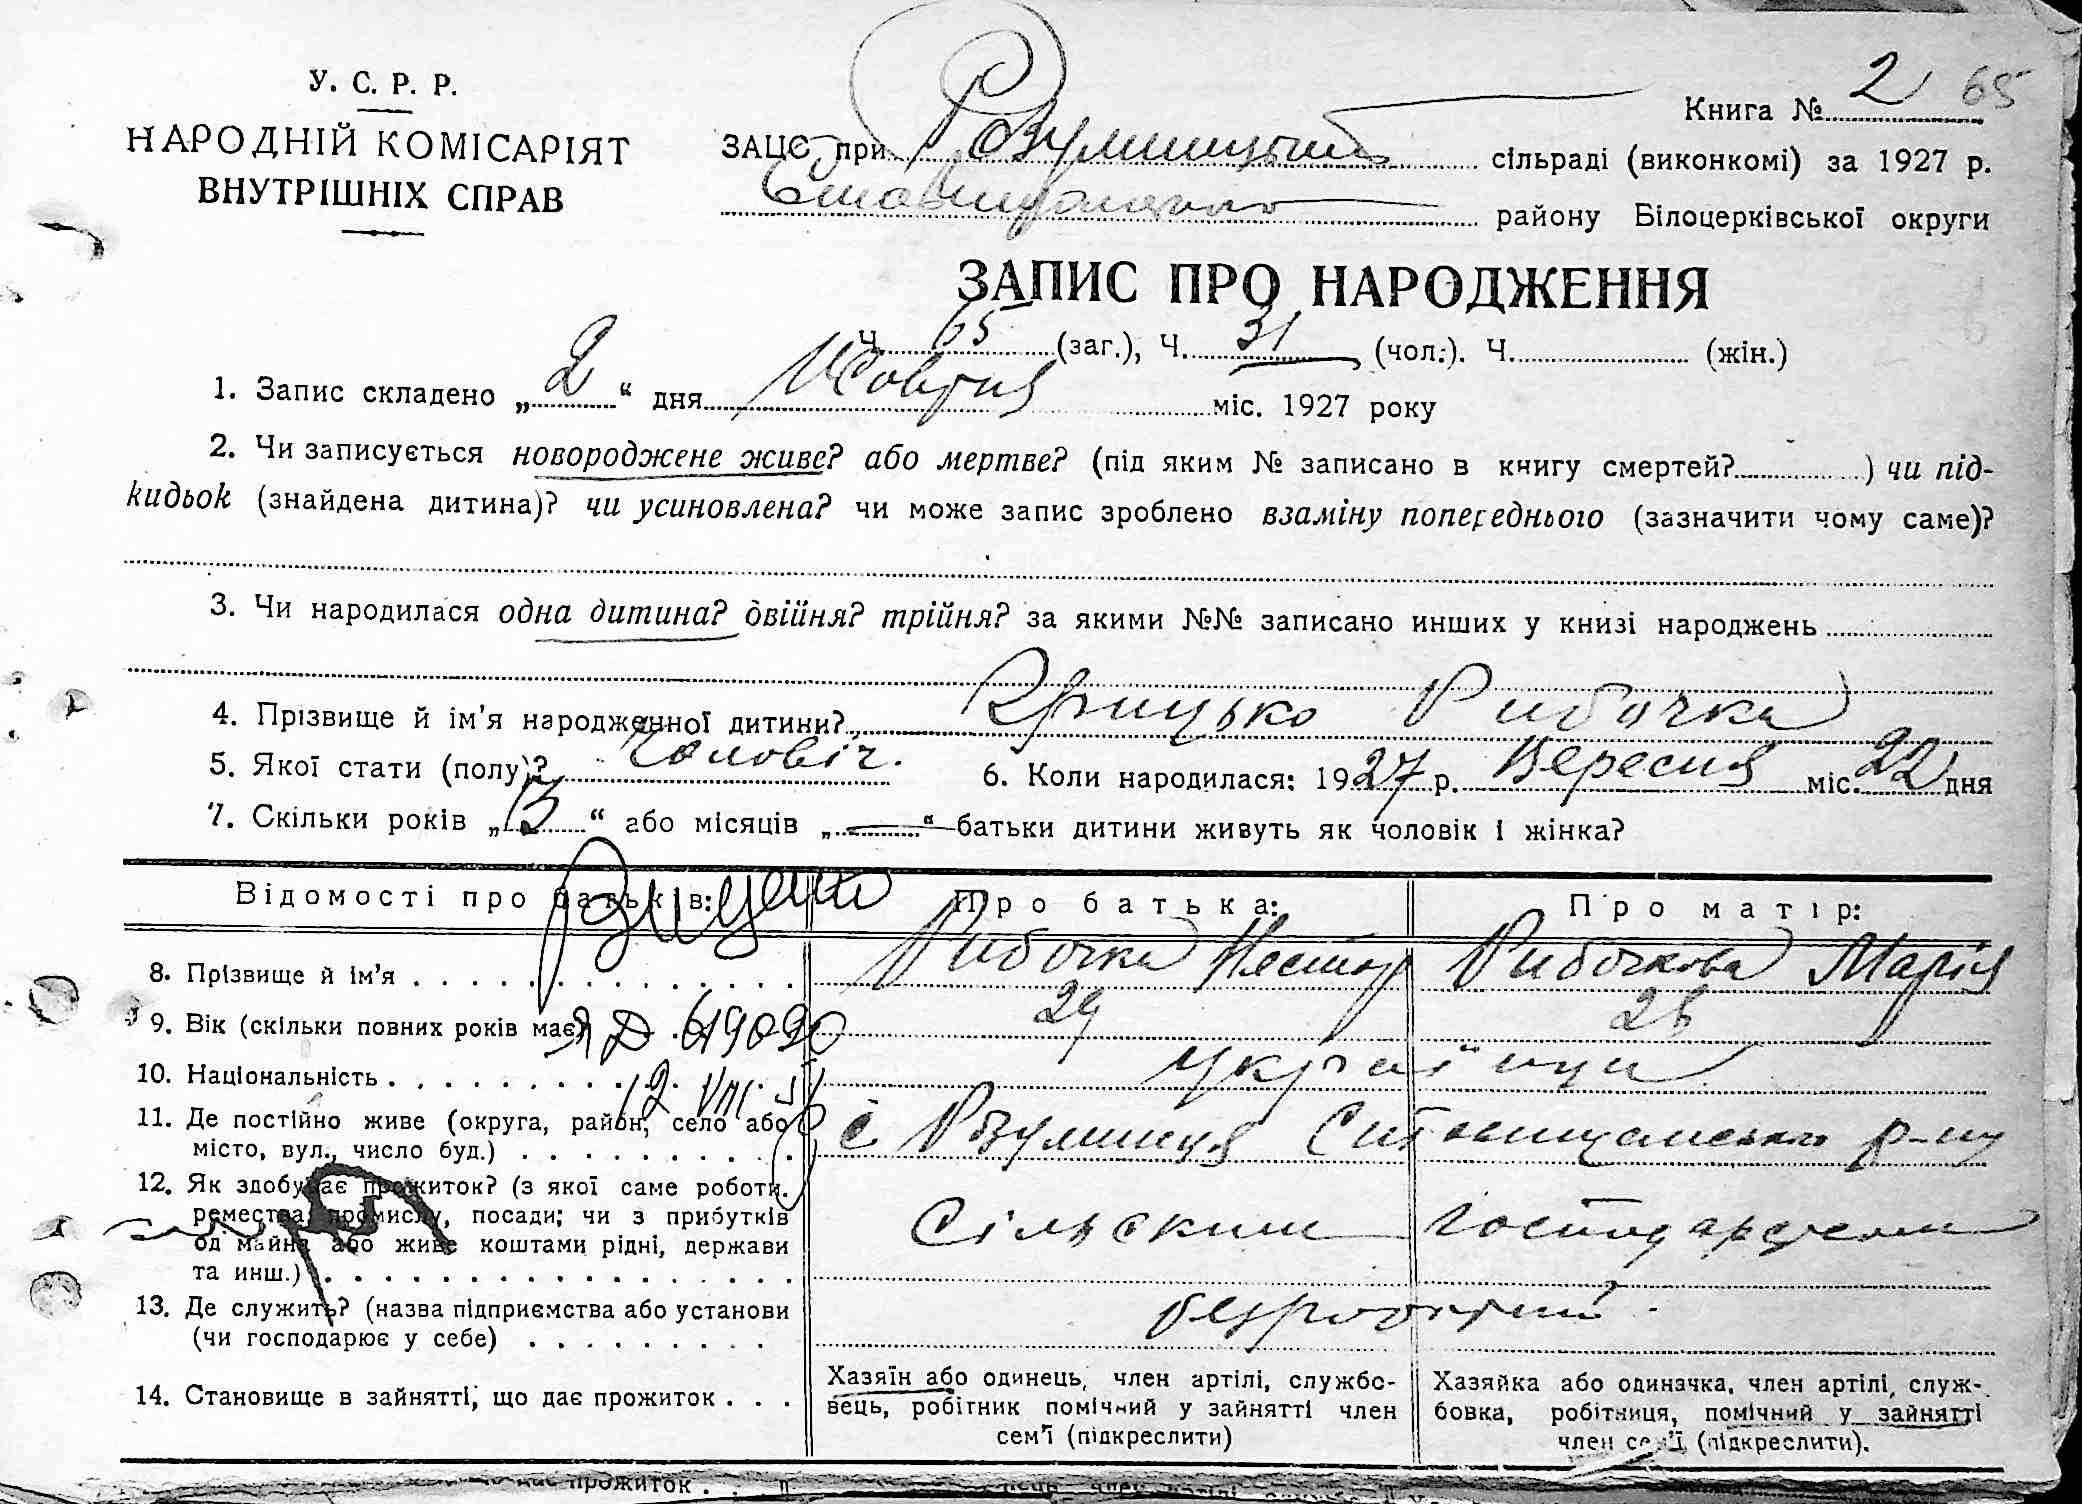 У. С. Р. Р.
НАРОДНІЙ КОМІСАРІЯТ
ВНУТРІШНІХ СПРАВ
Книга № 2 65
ЗАЦС при Розумницький сільраді (виконкомі) за 1927 р.
району Білоцерківської округи
ЗАПИС ПРО НАРОДЖЕННЯ
Ч. 65 (заг.), Ч. 31 (чол.). Ч. (жін.)
1. Запис складено „2“ дня Жовтня міс. 1927 року
2. Чи записується новороджене живе? або мертве? (під яким № записано в книгу смертей? ) чи під-
кидьок (знайдена дитина)? чи усиновлена? чи може запис зроблено взаміну попереднього (зазначити чому саме)?
3. Чи народилася одна дитина? двійня? трійня? за якими №№ записано инших у книзі народжень
4. Прізвище й ім'я народженної дитини? Грицько Рибочка
5. Якої стати (полу)? Чоловіч. 6. Коли народилася: 1927 р. Вересня міс. 22 дня
7. Скільки років „13“ або місяців „—“ батьки дитини живуть як чоловік і жінка?
Відомості про батьків: Про батька: Про матір:
8. Прізвище й ім'я Рибочка Нестор Рибочкова Марія
9. Вік (скільки повних років має) 29 28
619090
10. Національність українци
12 VIII
11. Де постійно живе (округа, район, село або
місто, вул., число буд.) с Розумниця Ставищанського р-ну
12. Як здобуває прожиток? (з якої саме роботи.
ремества, промислу, посади; чи з прибутків Сільским господарством
од майна або живе коштами рідні, держави
та инш.)
13. Де служить? (назва підприємства або установи
(чи господарює у себе)
14. Становище в зайнятті, що дає прожиток
Хазяїн або одинець, член артілі, службо-
вець, робітник помічний у зайнятті член
сем'ї (підкреслити)
Хазяйка або одиначка, член артілі, служ-
бовка, робітниця, помічний у зайнятті
член сем'ї (підкреслити).
прожиток